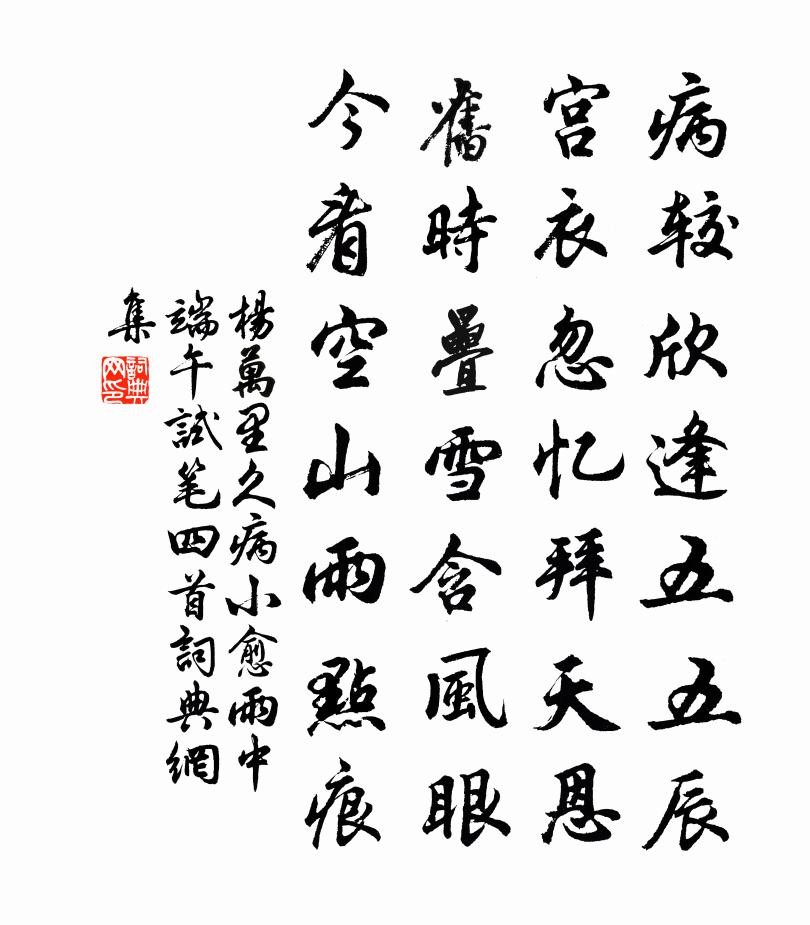 病较欣逢五五辰
宫衣忽忆拜天恩
舊時疊雪含風眼
今看空山雨點痕
楊萬里久病小愈雨中
端午試笔四首詞典網
集
詞典
网印